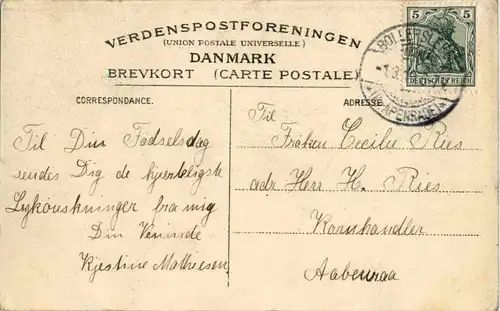 VERDENSPOSTFORENINGEN
(UNION POSTALE UNIVERSELLE)
DANMARK
BREVKORT (CARTE POSTALE)
5 5
DEUTSCHES REICH
BOLLERSLEBEN
(APENRADE)
CORRESPONDANCE.
Til Din Fødselsdag
sendes Dig de hjerteligste
Lykønskninger fra mig
Din Veninde
Kjestine Mathiesen
ADRESSE.
Til
Frøken Cecilie Ries
adr. Herr H. Ries
Kornhandler
Aabenraa